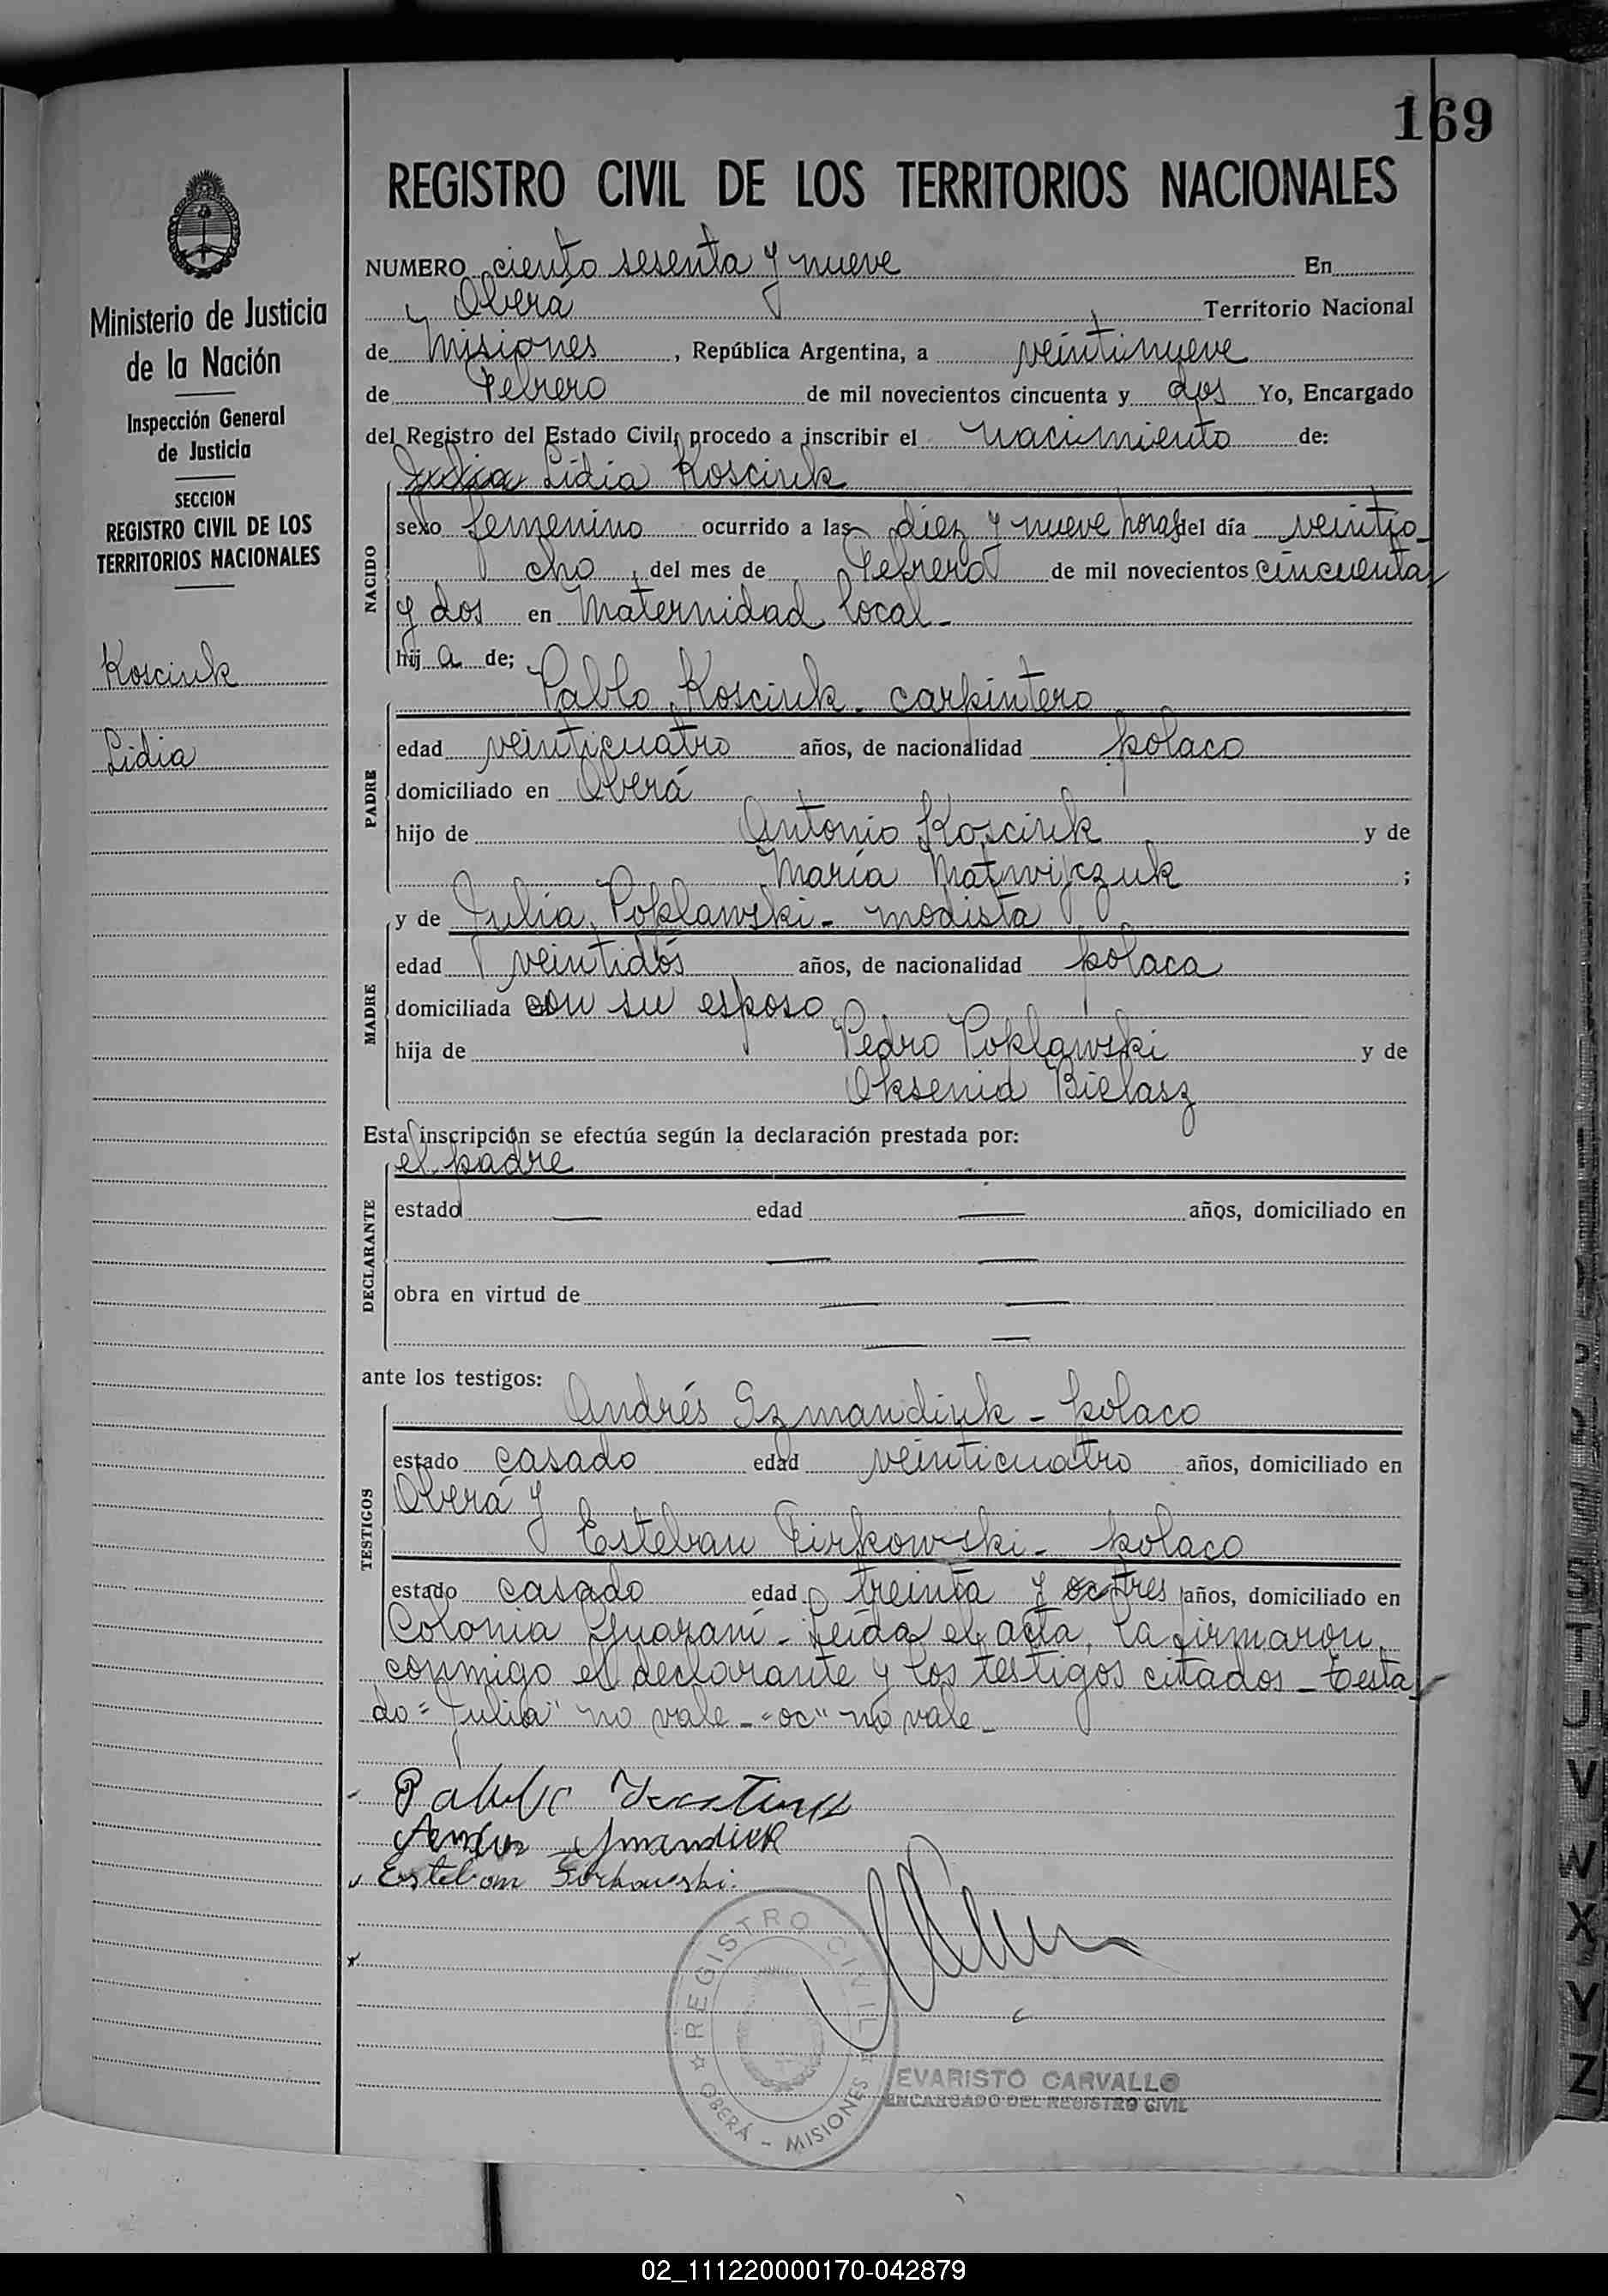 169
REGISTRO CIVIL DE LOS TERRITORIOS NACIONALES
Ministerio de Justicia
de la Nación
Inspección General
de Justicia
SECCION
REGISTRO CIVIL DE LOS
TERRITORIOS NACIONALES
Kosciuk
Lidia
NUMERO ciento sesenta y nueve En
Oberá Territorio Nacional
de Misiones, República Argentina, a veintinueve
de Febrero de mil novecientos cincuenta y dos Yo, Encargado
del Registro del Estado Civil, procedo a inscribir el nacimiento de:
Julia Lidia Kosciuk
NACIDO
sexo femenino ocurrido a las diez y nueve horas del día veintio-
cho, del mes de Febrero de mil novecientos cincuenta
y dos en Maternidad local-
hij a de;
Pablo Kosciuk - carpintero
PADRE
edad veinticuatro años, de nacionalidad polaco
domiciliado en Oberá
hijo de Antonio Kosciuk y de
María Matwijczuk ;
y de Julia Poklawski - modista
MADRE
edad veintidós años, de nacionalidad polaca
domiciliada con su esposo
hija de Pedro Poklawski y de
Oksenia Bielasz
Esta inscripción se efectúa según la declaración prestada por:
el padre
DECLARANTE
estado — edad — años, domiciliado en
— —
obra en virtud de — —
— —
ante los testigos:
Andrés Szmandiuk - polaco
TESTIGOS
estado casado edad veinticuatro años, domiciliado en
Oberá y
Esteban Firkowski - polaco
estado casado edad treinta y oc tres años, domiciliado en
Colonia Guaraní - Leída el acta, la firmaron
conmigo el declarante y los testigos citados - Testa-
do = "Julia" no vale - "oc" no vale -
Pablo
Esteban Firkowski.
REGISTRO CIVIL
OBERÁ - MISIONES
EVARISTO CARVALLO
ENCARGADO DEL REGISTRO CIVIL
S
T
U
V
W
X
Y
Z
02_111220000170-042879